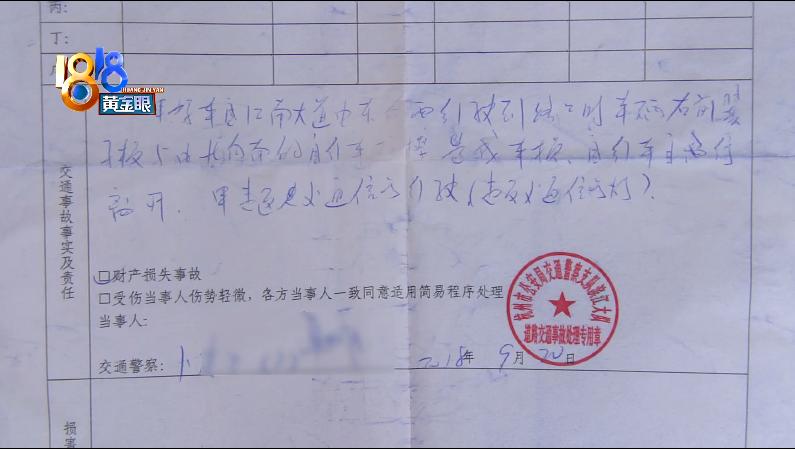 丙:
丁:
1818
HUANG JIN YAN
黄金眼
车 江南大道由东 西行驶到 时车辆右前翼
子板与由北向南的自行车 撞 造成车损、自行车主
离开. 甲违反交通信号行驶(违反交通信号灯).
交通事故事实及责任
□财产损失事故
□受伤当事人伤势轻微，各方当事人一致同意适用简易程序处理
当事人:
杭州市公安局交通警察支队滨江大队
道路交通事故处理专用章
交通警察: 2018年 9月 20日
损害